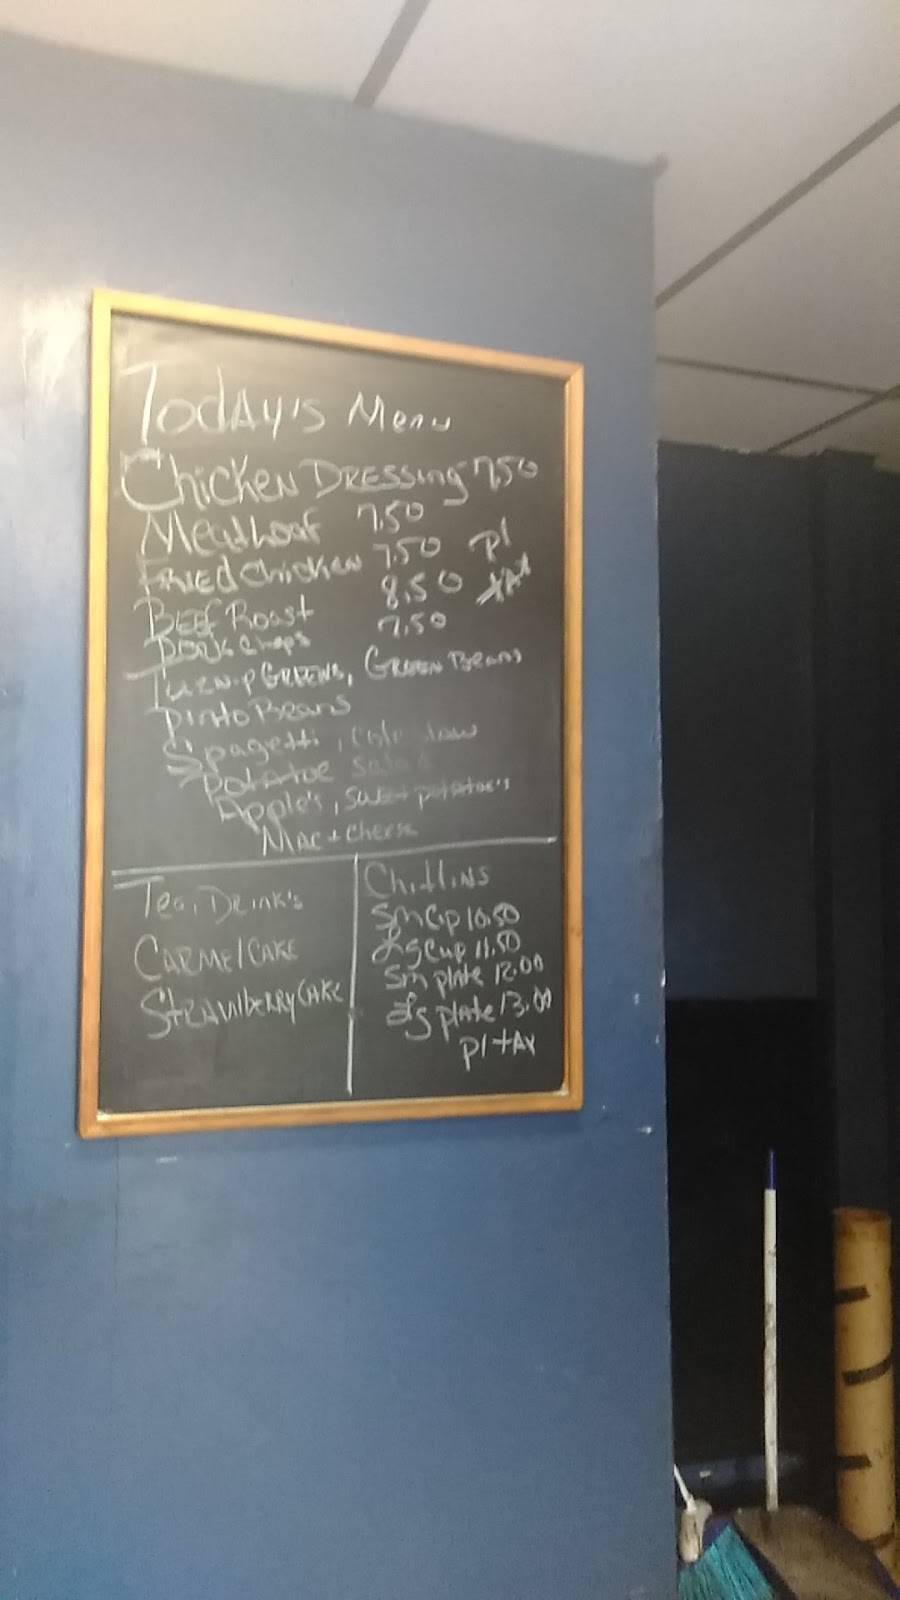 Today's Menu
Chicken Dressing 7.50
Meatloaf 7.50
Fried Chicken 7.50 pl
Beef Roast 8.50 tax
Pork Chops 7.50
Turnip Greens, Green Beans
Pinto Beans
Spagetti, Cole slaw
Potatoe Salad
Apple's, sweet potatoe's
Mac + cheese
Tea, Drink's
Carmel Cake
Strawberry Cake
Chitlins
Sm Cup 10.50
Lg Cup 11.50
Sm plate 12.00
Lg plate 13.00
pl tax